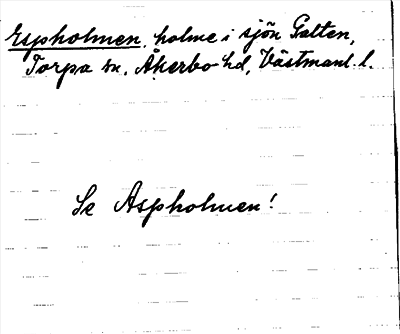 Espholmen, holme i sjön Galten,
Torpa sn, Åkerbo hd, Västmanl. l.
Se Aspholmen!